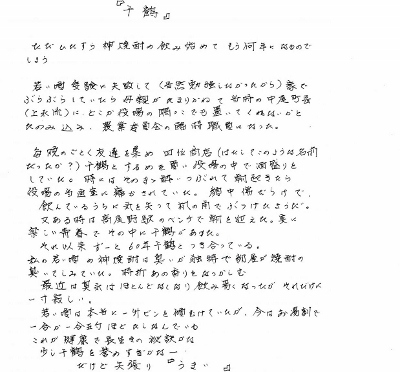 『千鶴』
ただひたすら神焼酎の飲み始めて もう何年になるので
しょう
若い頃受験に失敗して(当然勉強しなかったから)家で
ぶらぶらしていたら母親が たまりかねて当時の中尾町長
に どこか役場の隅っこでも置いてくれないかと
たのみ込み、農業委員会の臨時職員になった。
毎晩のごとく友達を集め
千鶴とするめを買い役場の中で酒盛りを
していた。時にはそのまま酔いつぶれて朝起きたら
役場の
飲んでいるうちに気を失って机の角でぶつけたようだ。
又ある時は高尾野駅のベンチで朝を迎えた。実に
楽しい青春で その中に千鶴があった。
それ以来 ずーと 60年千鶴とつき合っている。
私の若い頃の神焼酎は臭いが独特で部屋が焼酎の
臭いでしみていた。時折あの香りをなつかしむ
最近は臭気はほとんどなくなり飲み易くなったが それだけに
一寸寂しい。
若い頃は本当に一升ビンを
一合か一合五勺ほどたしなんでいる
これが健康で長生きの秘訣かな
少し千鶴を褒めすぎかなー
だけど矢張り『うまい』